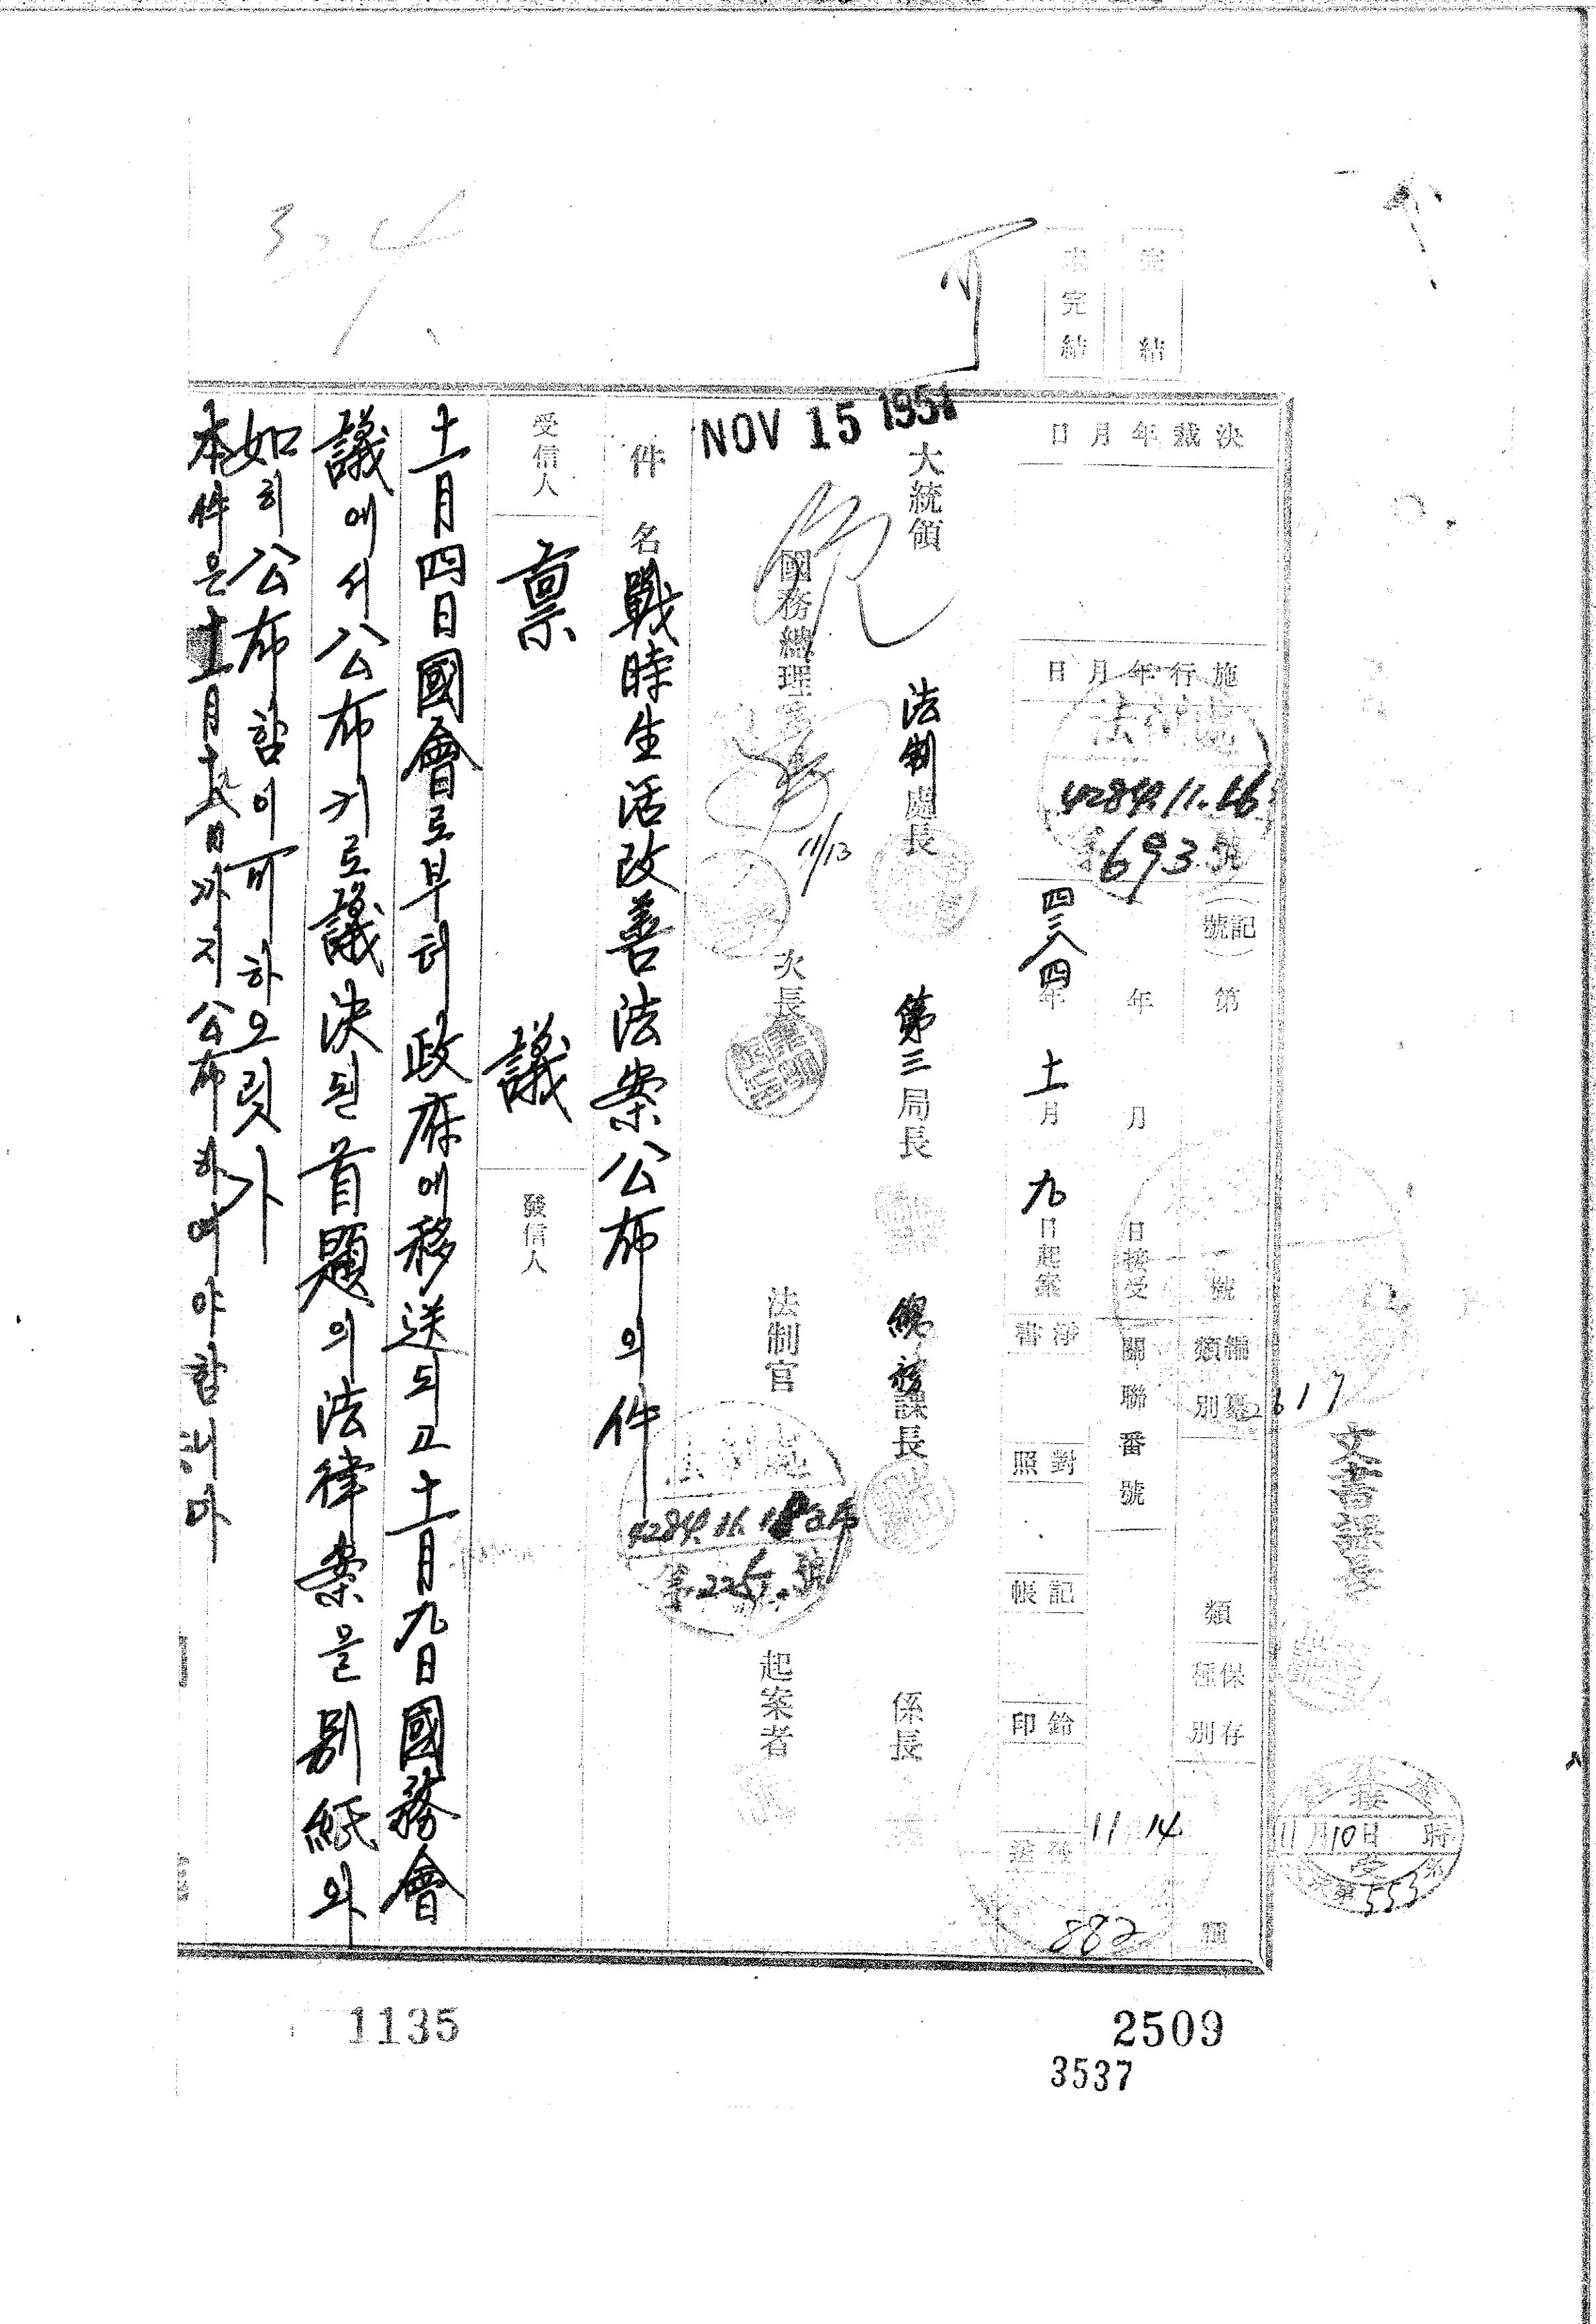 完結
未完結
決裁年月日
施行年月日
法制處
4284.11.16
第693號
記號 第 號
編纂類別 類
保存種別 種
年 月 日接受
關聯番號
11 14
882
四二八四年十一月九日起案
淨書
對照
記帳
鈐印
發送
617
文書課長
接受
11月10日 時
第553
NOV 15 1951
大統領
法制處長
第三局長
總務課長
係長
國務總理
11/13
次長
法制官
起案者
件名 戰時生活改善法案公布의件
法制處
4284.11.18
第225 號
受信人
稟議
發信人
十一月四日國會로부터政府에移送되고十一月九日國務會
議에서公布키로議決된首題의法律案을別紙와
如히公布함이可하오릿가
本件은十一月十八日까지公布하여야함니다
1135
2509
3537